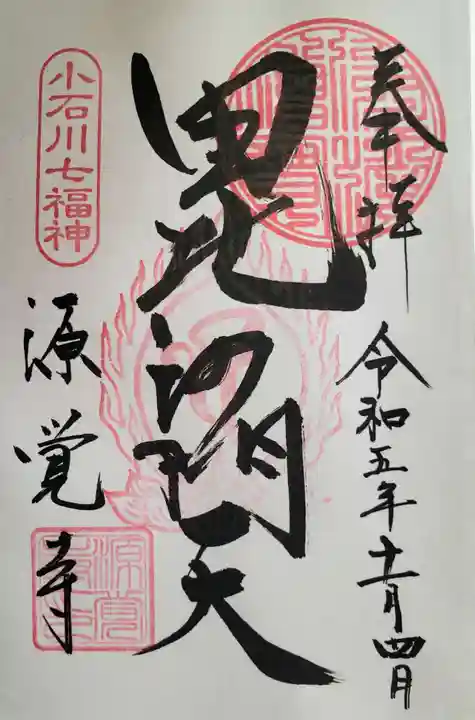 奉拝
令和五年十一月四日
毘沙門天
小石川七福神
源覚寺
源覚寺